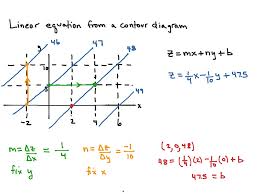 Linear equation from a contour diagram
y 46 47 48
z = mx + ny + b
z = 1/4 x - 1/10 y + 47.5
10
49
x
-2 2 4 6
m = Δz/Δx = 1/4 n = Δz/Δy = -1/10
fix y fix x
48 = (1/4)(2) - 1/10 (0) + b
47.5 = b